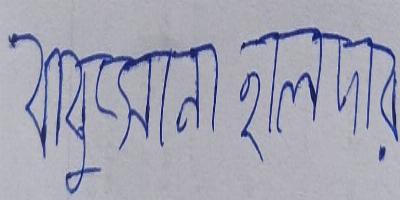 বাবুসোনা হালদার